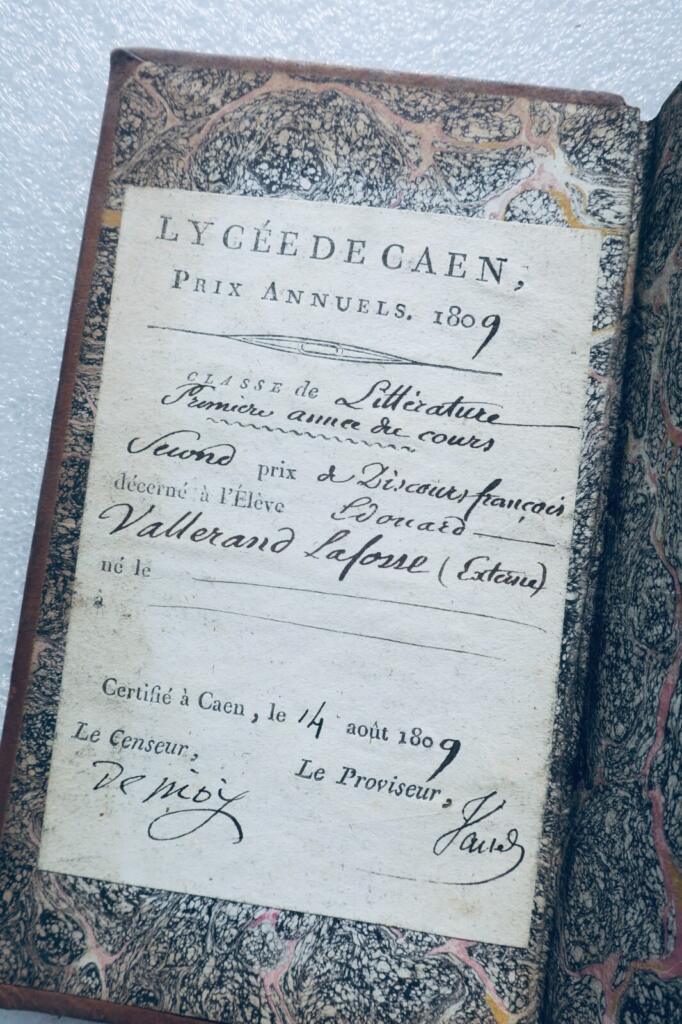 LYCÉE DE CAEN,
PRIX ANNUELS. 1809
CLASSE de Littérature
Premiere année du cours
Second prix de Discours françois
décerné à l'Élève Edouard
Vallerand Lafosse (Externe)
né le
à
Certifié à Caen, le 14 août 1809
Le Censeur,
Le Proviseur,